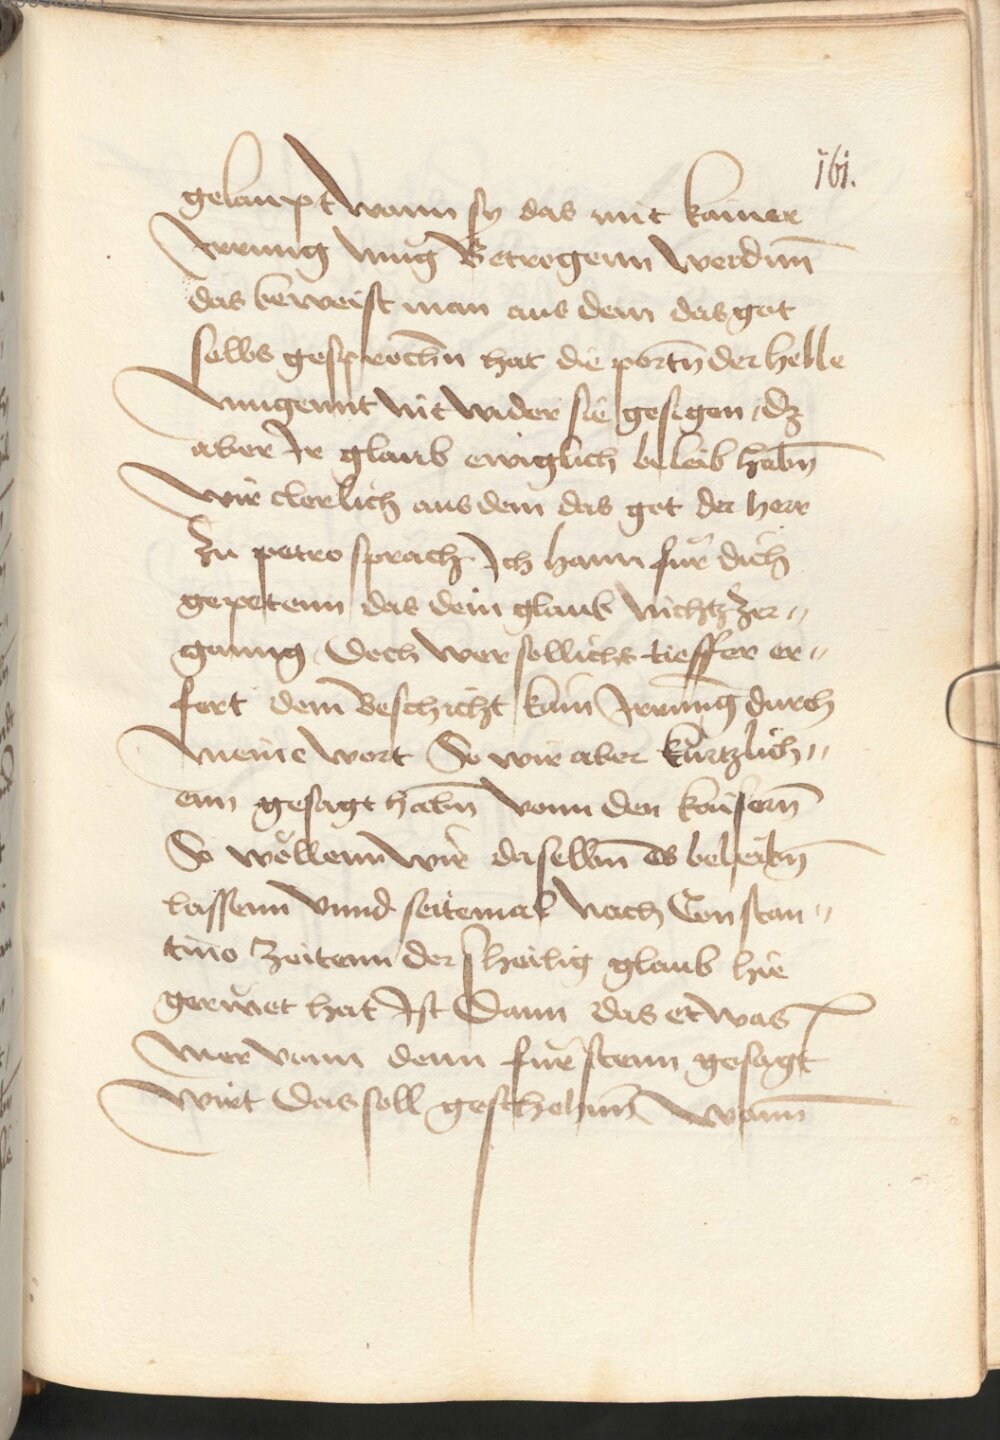 161.
gelaupt wann sy das mit kainer
Irrung mug Betrogenn werdnn̄
das beweist man aus dem das got
selbs gesprochn̄ hat die portn̄ der helle
mugennt nit wider sie gesigen dz
aber Ir glaub ewiglich beleib habn̄
wir clerlich aus dem das got der herr
zu petro sprach Ich hann für dich
gepetenn das dein glaub nichtz zer〃
ganng Doch wer sollichs tieffer er〃
fert dem beschicht kain Irrung durch
meine wort So wir aber kurtzlich〃
enn gesagt habn̄ vonn den kaisern̄
So wöllenn wir daselbm̄ es beleibn̄
lassenn vnnd seitemal nach Constan〃
tino zeitenn der heilig glaub hie
gerwet hat Ist Dann das etwas
mer vonn denn fürstenn gesagt
wirt Das soll geschehnn̄ wann̄